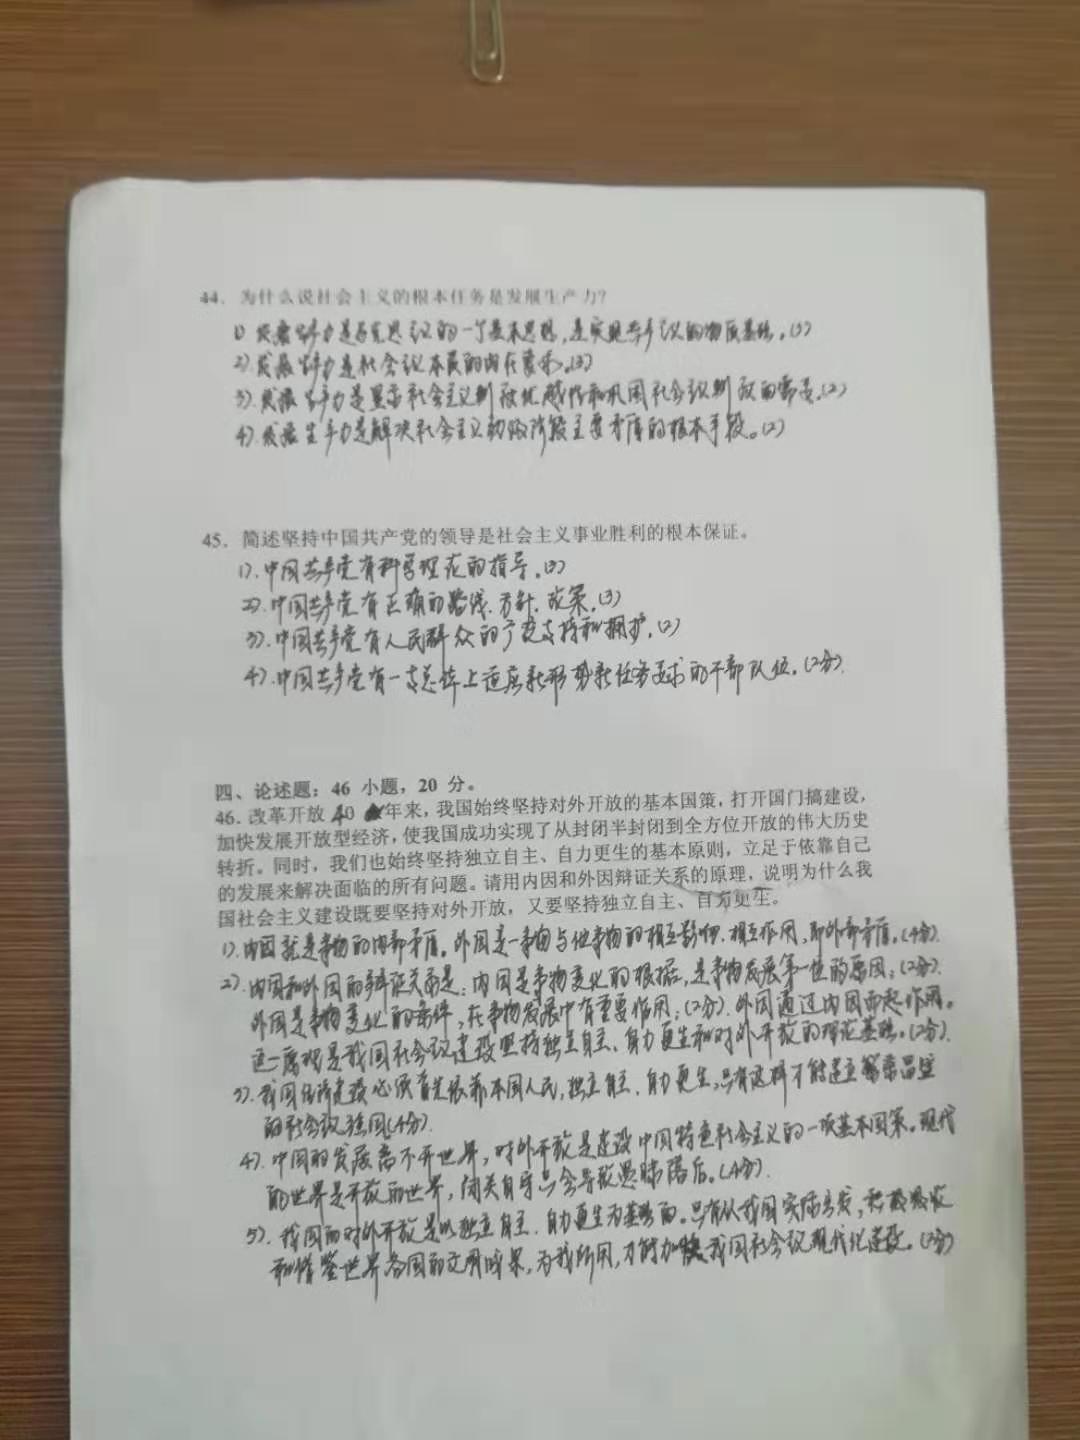 44. 为什么说社会主义的根本任务是发展生产力?
1) 发展生产力是马克思主义的一个基本思想，是实现共产主义的物质基础。(3)
2) 发展生产力是社会主义本质的内在要求。(3)
3). 发展生产力是显示社会主义制度优越性和巩固社会主义制度的需要。(2)
4). 发展生产力是解决社会主义初级阶段主要矛盾的根本手段。(2)
45. 简述坚持中国共产党的领导是社会主义事业胜利的根本保证。
1). 中国共产党有科学理论的指导。(3)
2). 中国共产党有正确的路线、方针、政策。(3)
3). 中国共产党有人民群众的广泛支持和拥护。(2)
4). 中国共产党有一支总体上适应新形势新任务要求的干部队伍。(2分).
四、论述题：46 小题，20 分。
46. 改革开放 40 年来，我国始终坚持对外开放的基本国策，打开国门搞建设，
加快发展开放型经济，使我国成功实现了从封闭半封闭到全方位开放的伟大历史
转折。同时，我们也始终坚持独立自主、自力更生的基本原则，立足于依靠自己
的发展来解决面临的所有问题。请用内因和外因辩证关系的原理，说明为什么我
国社会主义建设既要坚持对外开放，又要坚持独立自主、自力更生。
1). 内因就是事物的内部矛盾。外因是一事物与他事物的相互影响、相互作用，即外部矛盾。(4分).
2). 内因和外因的辩证关系是：内因是事物变化的根据，是事物发展第一位的原因；(2分).
外因是事物变化的条件，在事物发展中有重要作用；(2分). 外因通过内因而起作用。
这一原理是我国社会主义建设坚持独立自主、自力更生和对外开放的理论基础。(2分).
3). 我国经济建设必须首先依靠本国人民，独立自主、自力更生，只有这样才能建立繁荣昌盛
的社会主义强国(4分).
4). 中国的发展离不开世界，对外开放是建设中国特色社会主义的一项基本国策。现代
的世界是开放的世界，闭关自守只会导致愚昧落后。(4分).
5). 我国的对外开放是以独立自主、自力更生为基础的。只有从我国实际出发，积极吸收
和借鉴世界各国的文明成果，为我所用，才能加快我国社会主义现代化建设。(2分)